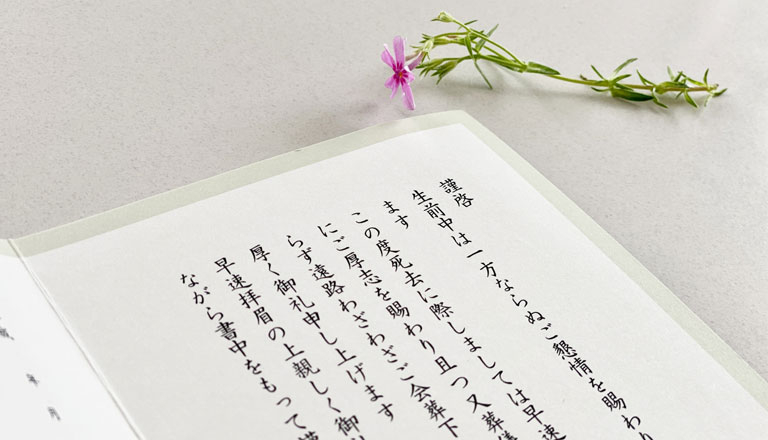 謹啓
生前中は一方ならぬご懇情を賜わり
ます
この度死去に際しましては早速
にご厚志を賜わり且つ又葬儀
らず遠路わざわざご会葬下
厚く御礼申し上げます
早速拝眉の上親しく御
ながら書中をもって
年 月